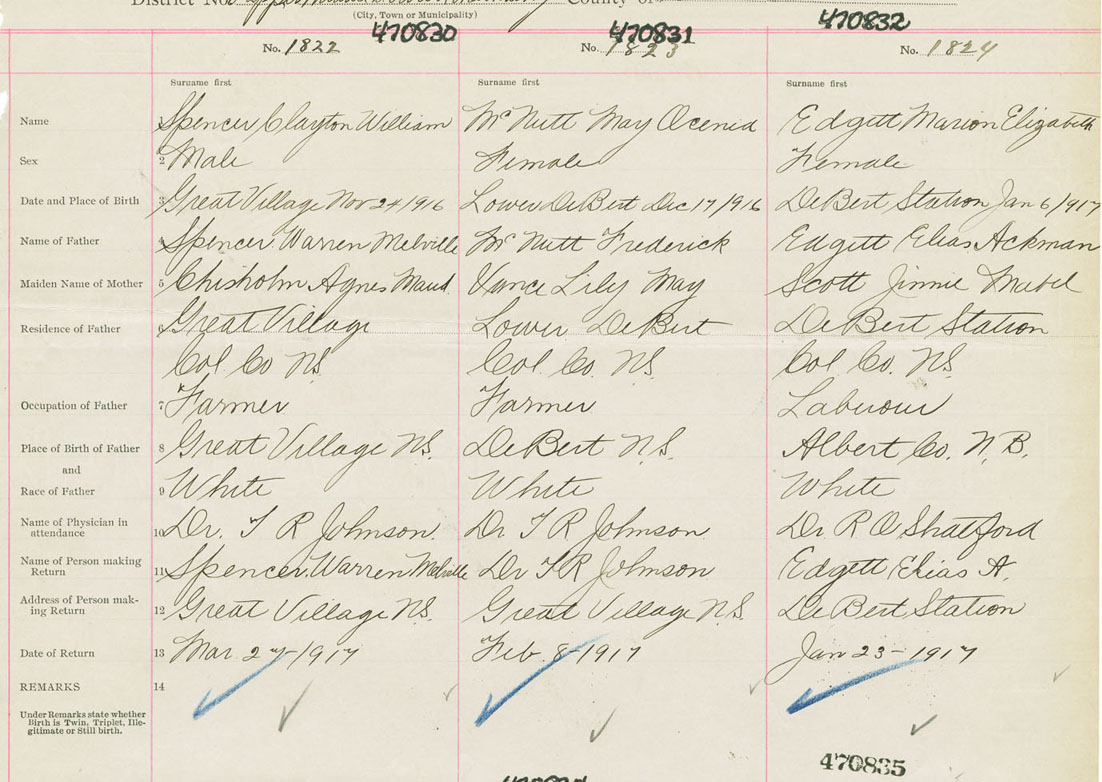 District No. County of
(City, Town or Municipality)
470830 470831 470832
No. 1822 No. 1823 No. 1824
Surname first Surname first Surname first
Name 1 Spencer Clayton William McNutt May Ocenid Edgett Marion Elizabeth
Sex 2 Male Female Female
Date and Place of Birth 3 Great Village Nov 24/1916 Lower DeBert Dec 17/916 DeBert Station Jan 6/1917
Name of Father 4 Spencer Warren Melville McNutt Frederick Edgett Elias Ackman
Maiden Name of Mother 5 Chisholm Agnes Maud Vance Lily May Scott Jinnie Mabel
Residence of Father 6 Great Village Lower DeBert DeBert Station
Col. Co NS Col. Co. NS. Col. Co. NS.
Occupation of Father 7 Farmer Farmer Labuour
Place of Birth of Father 8 Great Village NS. DeBert N.S. Albert Co. N.B.
and
Race of Father 9 White White White
Name of Physician in
attendance 10 Dr. T R Johnson. Dr T R Johnson Dr R O Shatford
Name of Person making
Return 11 Spencer. Warren Melville Dr T R Johnson Edgett Elias A.
Address of Person mak-
ing Return 12 Great Village NS. Great Village N.S. DeBert Station
Date of Return 13 Mar. 27-1917 Feb. 8-1917 Jan 23-1917
REMARKS 14
Under Remarks state whether
Birth is Twin, Triplet, Ille-
gitimate or Still birth.
470835